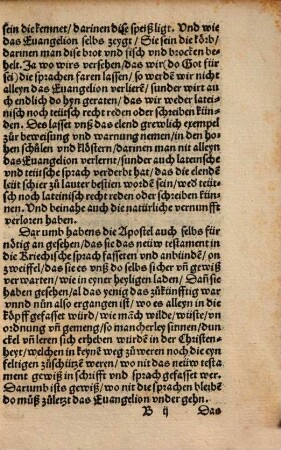 sein die kemnet / darinen dise speißligt. Und wie
das Euangelion selbs zeygt / Sie sein die kŏrb /
darinen man dise brot vnd fisch vnd brocken be-
helt. Ja wo wirs versehen / das wir (do Got für
sei) die sprachen faren lassen / so werdē wir nicht
alleyn das Euangelion verlierē / sunder wirt auch
endlich do hyn geraten / das wir weder latei-
nisch noch teütsch recht reden oder schreiben kün-
den. Des lasset vnß das elend grewlich exempel
zur beweisung vnd warnung nemen / in den ho-
hen schůlen vnd klŏstern / darinn man nit alleyn
das Euangelion verlernt / sunder auch lateinsche
vnd teütsche sprach verderbt hat / das die elendē
leüt schier zů lauter bestien wordē sein / wed teüt-
sch noch lateinisch recht reden oder schreiben kün-
nen. Und beinahe auch die natürliche vernunfft
verloren haben.
Darumb habens die Apostel auch selbs für
nŏtig an gesehen / das sie das neüw testament in
die Kriechische sprach fasseten vnd anbündē / on
zweiffel / das sie es vnß do selbs sicher vñ gewiß
verwarten / wie in eyner heyligen laden / Dañ sie
haben gesehen / al das yenig das zůkünfftig war
vnnd nün also ergangen ist / wo es alleyn in die
kŏpff gefasset würd / wie mãch wilde / wüste / vn
ordnung vñ gemeng / so mancherley sinnen / dunc-
kel vñ leren sich erheben würdē in der Christen-
heyt / welchen in keynē weg zů weren noch die eyn
feltigen zůschützē weren / wo nit das neüw testa
ment gewiß in schrifft vnd sprach gefasset wer.
Darumb ists gewiß / wo nit die sprachen bleibē
do můß zůletzt das Euangelion vnder gehn.
B ij Das